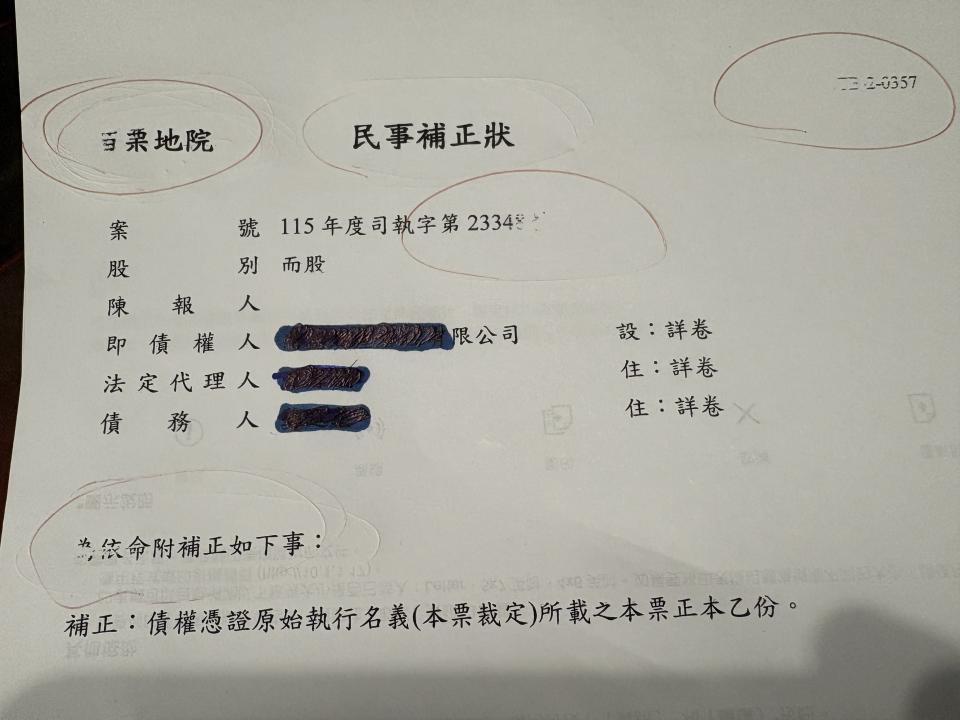 2-0357
栗地院
民事補正狀
案號 115 年度司執字第 23348
股別 而股
陳報人
即債權人 限公司 設：詳卷
法定代理人 住：詳卷
債務人 住：詳卷
為依命附補正如下事：
補正：債權憑證原始執行名義(本票裁定)所載之本票正本乙份。